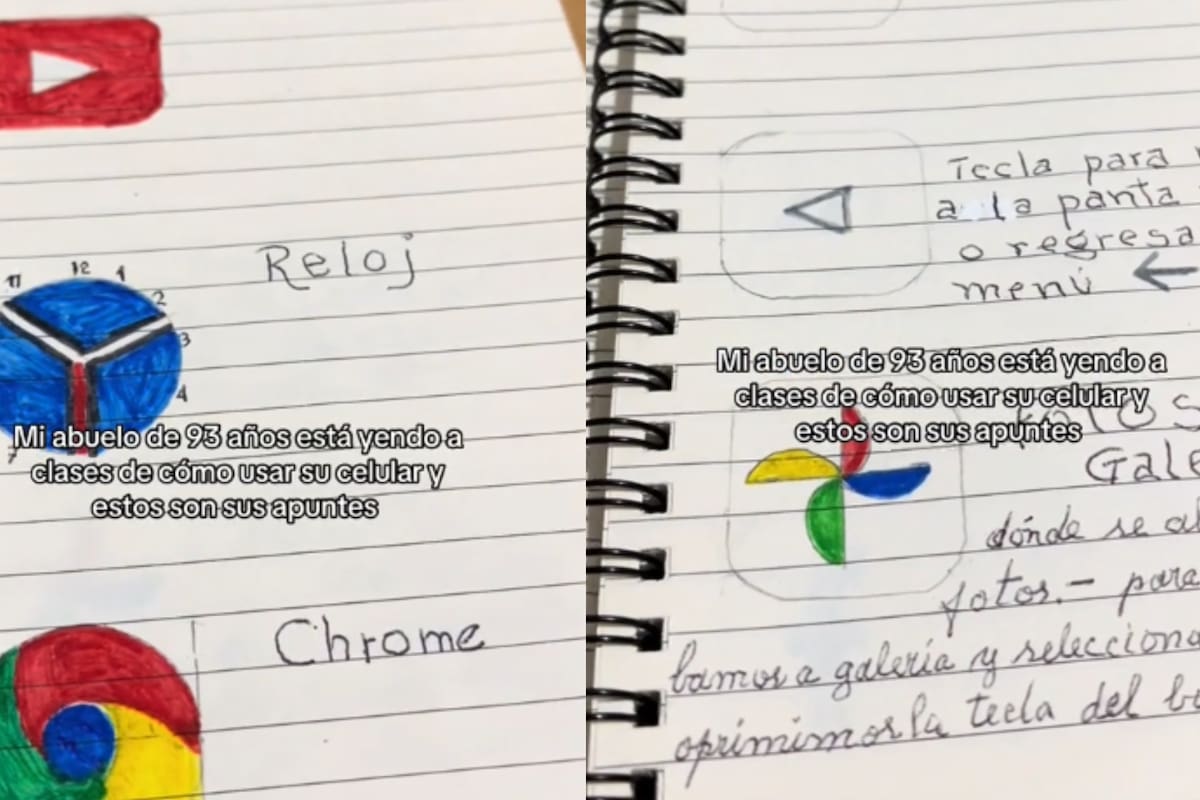 11 12 1
2
3
4
7
Reloj
Mi abuelo de 93 años está yendo a
clases de cómo usar su celular y
estos son sus apuntes
Chrome
Tecla para
a la panta
o regresa
menú
Mi abuelo de 93 años está yendo a
clases de cómo usar su celular y
estos son sus apuntes
Gale
dónde se
fotos.- para
bamos a galería y selecciona
oprimimos la tecla del